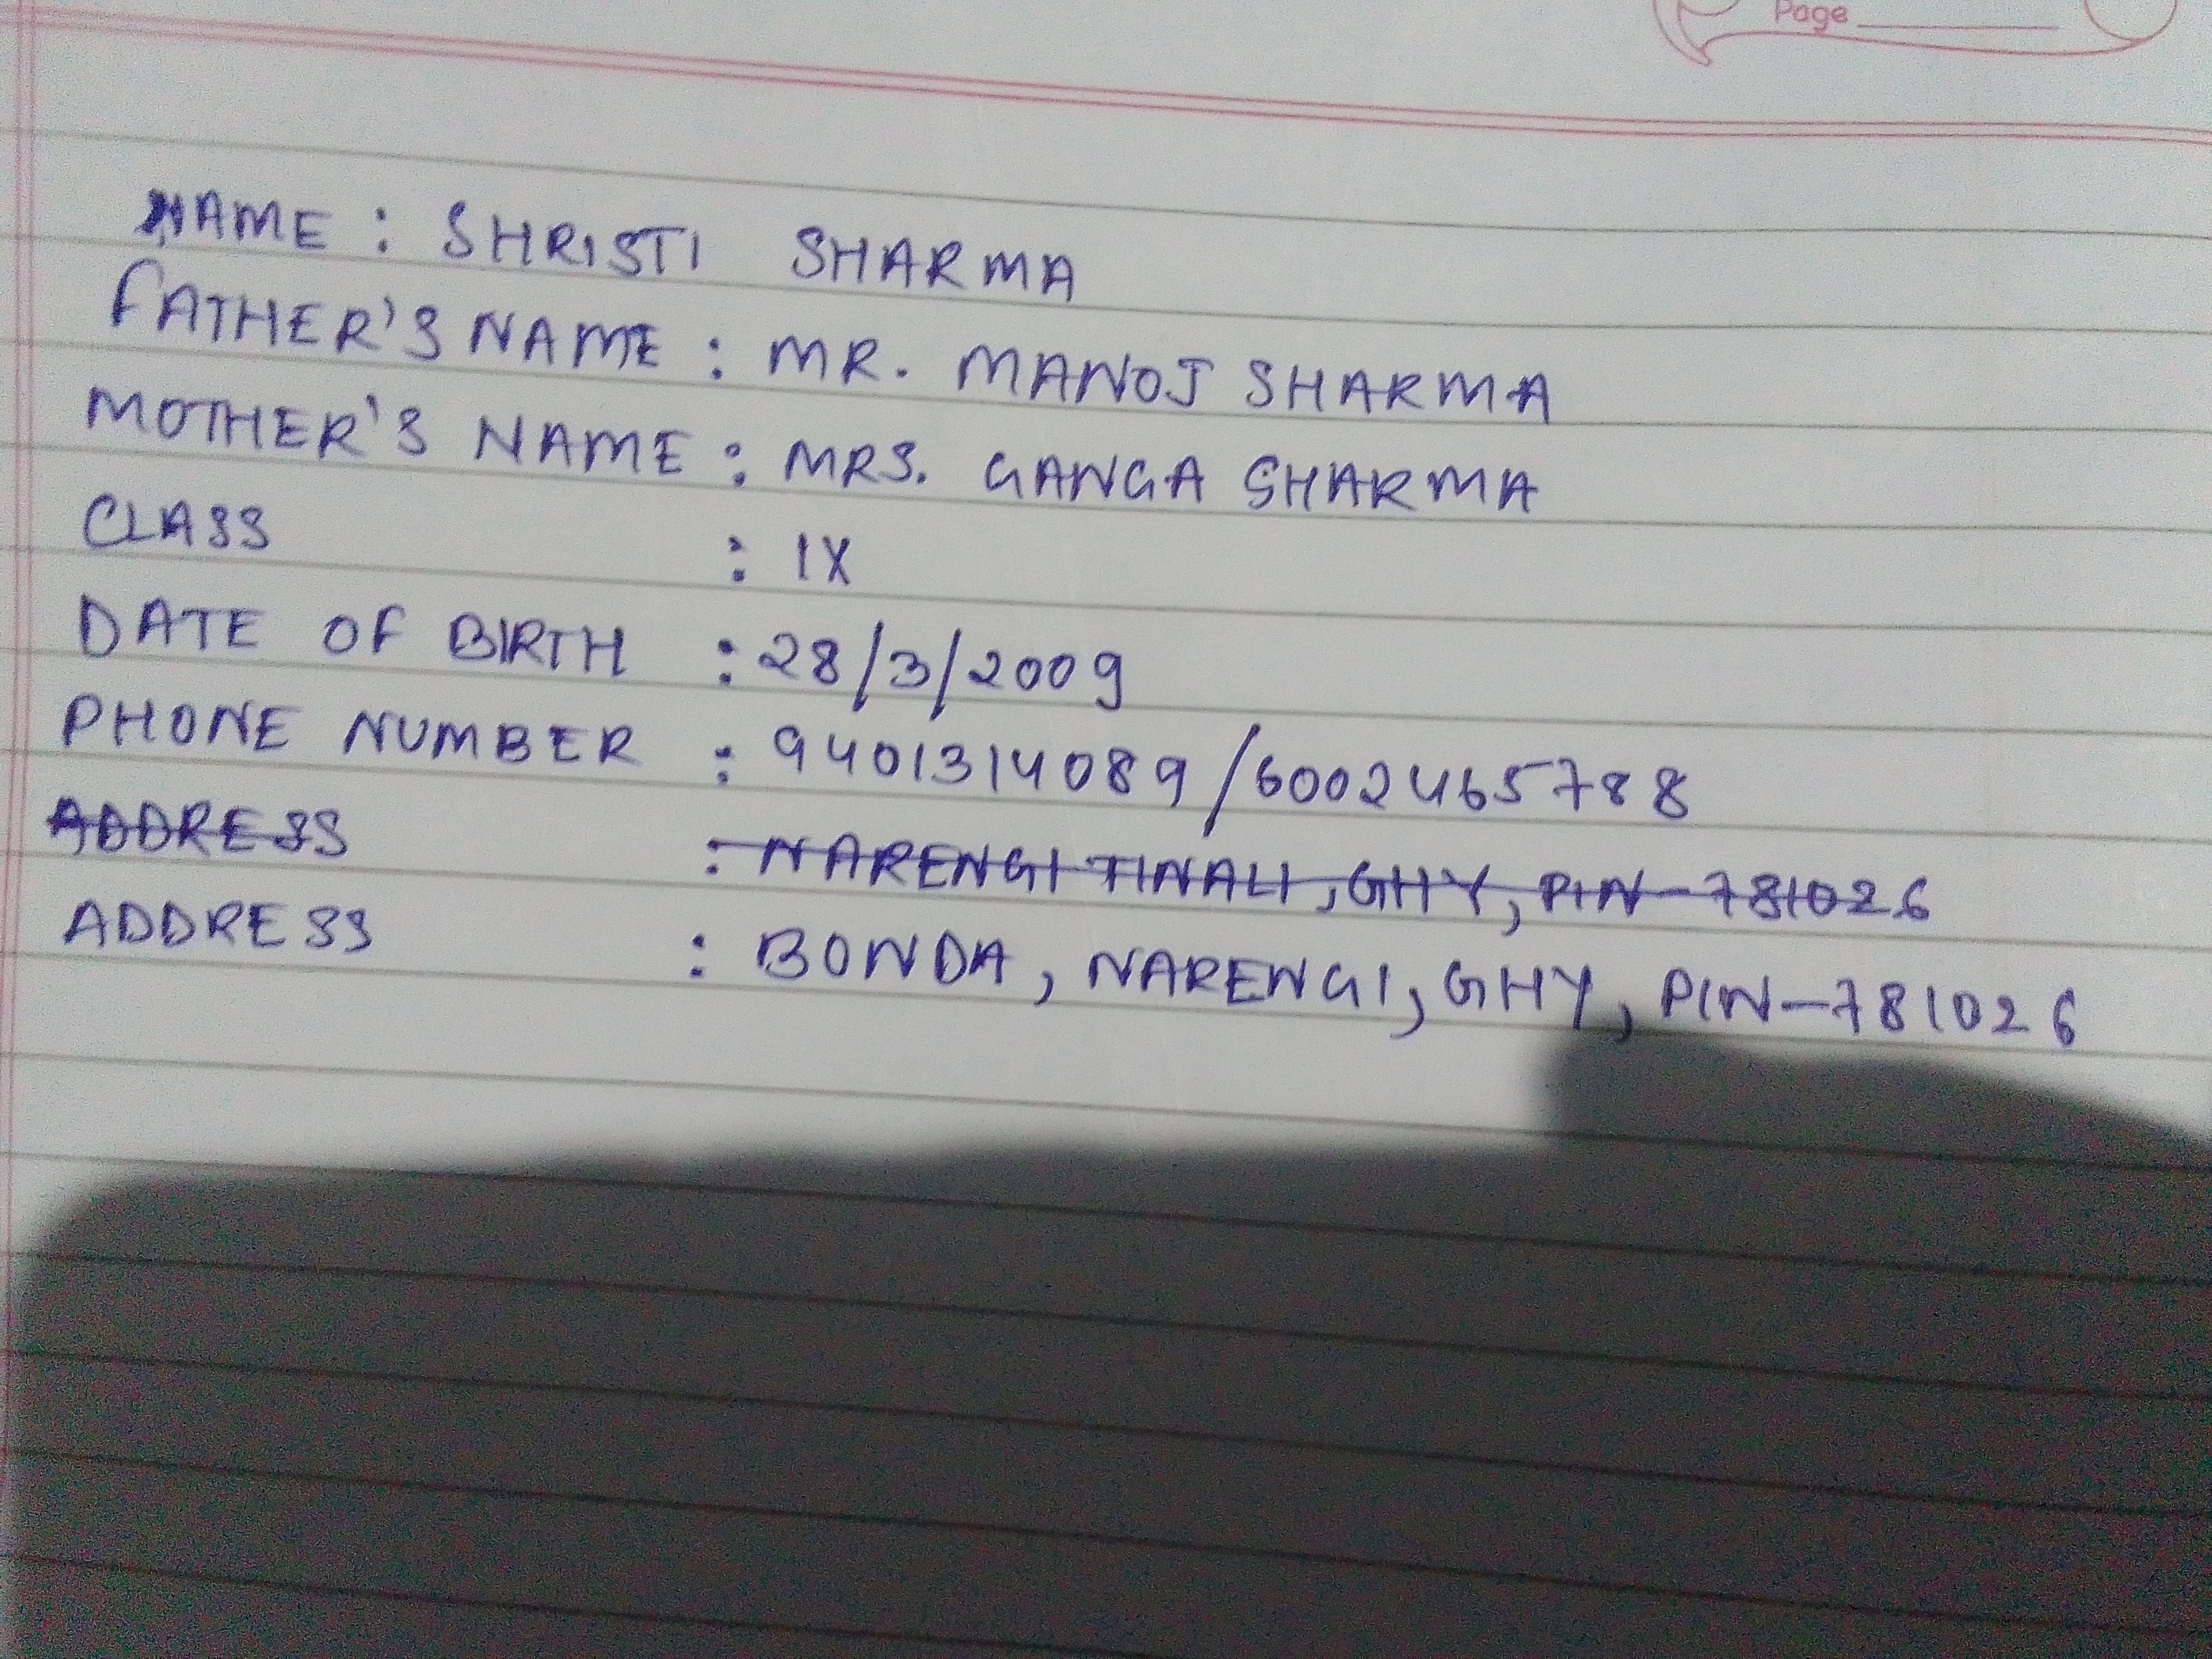 Page
NAME : SHRISTI SHARMA
FATHER'S NAME : MR. MANOJ SHARMA
MOTHER'S NAME : MRS. GANGA SHARMA
CLASS : IX
DATE OF BIRTH : 28/3/2009
PHONE NUMBER : 9401314089/6002465788
ADDRESS : NARENGI TINALI, GHY, PIN-781026
ADDRESS : BONDA, NARENGI, GHY, PIN-781026